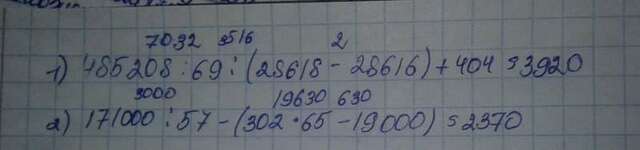 7032 3516 2
1) 485208 : 69 : (28618 - 28616) + 404 = 3920
3000 19630 630
2) 171000 : 57 - (302 · 65 - 19000) = 2370